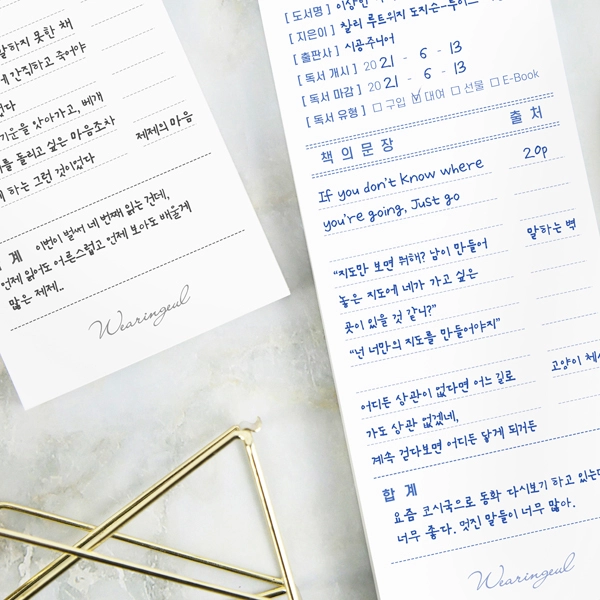 말하지 못한 채
간직하고 죽어야
기운을 앗아가고, 베개
를 돌리고 싶은 마음조차
하는 그런 것이었다
제제의 마음
계 이번이 벌써 네 번째 읽는건데,
언제 읽어도 어른스럽고 언제 보아도 배울게
많은 제제..
Wearingeul
[ 도서명 ] 이상한
[ 지은이 ] 찰리 루트위지 도지슨-루이스
[ 출판사 ] 시공주니어
[ 독서 개시 ] 2021 - 6 - 13
[ 독서 마감 ] 2021 - 6 - 13
[ 독서 유형 ] □ 구입 ☑ 대여 □ 선물 □ E-Book
책 의 문 장 출 처
If you don't know where 20p
you're going, Just go
"지도만 보면 뭐해? 남이 만들어 말하는 벽
놓은 지도에 네가 가고 싶은
곳이 있을 것 같니?"
"넌 너만의 지도를 만들어야지"
어디든 상관이 없다면 어느 길로 고양이 체셔
가도 상관 없겠네,
계속 걷다보면 어디든 닿게 되거든
합 계
요즘 코시국으로 동화 다시보기 하고 있는데
너무 좋다. 멋진 말들이 너무 많아.
Wearingeul